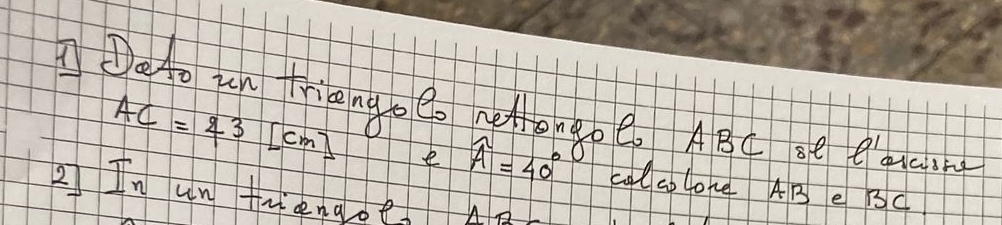 1] Dato un triangolo rettangolo ABC se l'
AC = 23 [cm] e Â = 40° calcolare AB e BC
2] In un triangolo AB